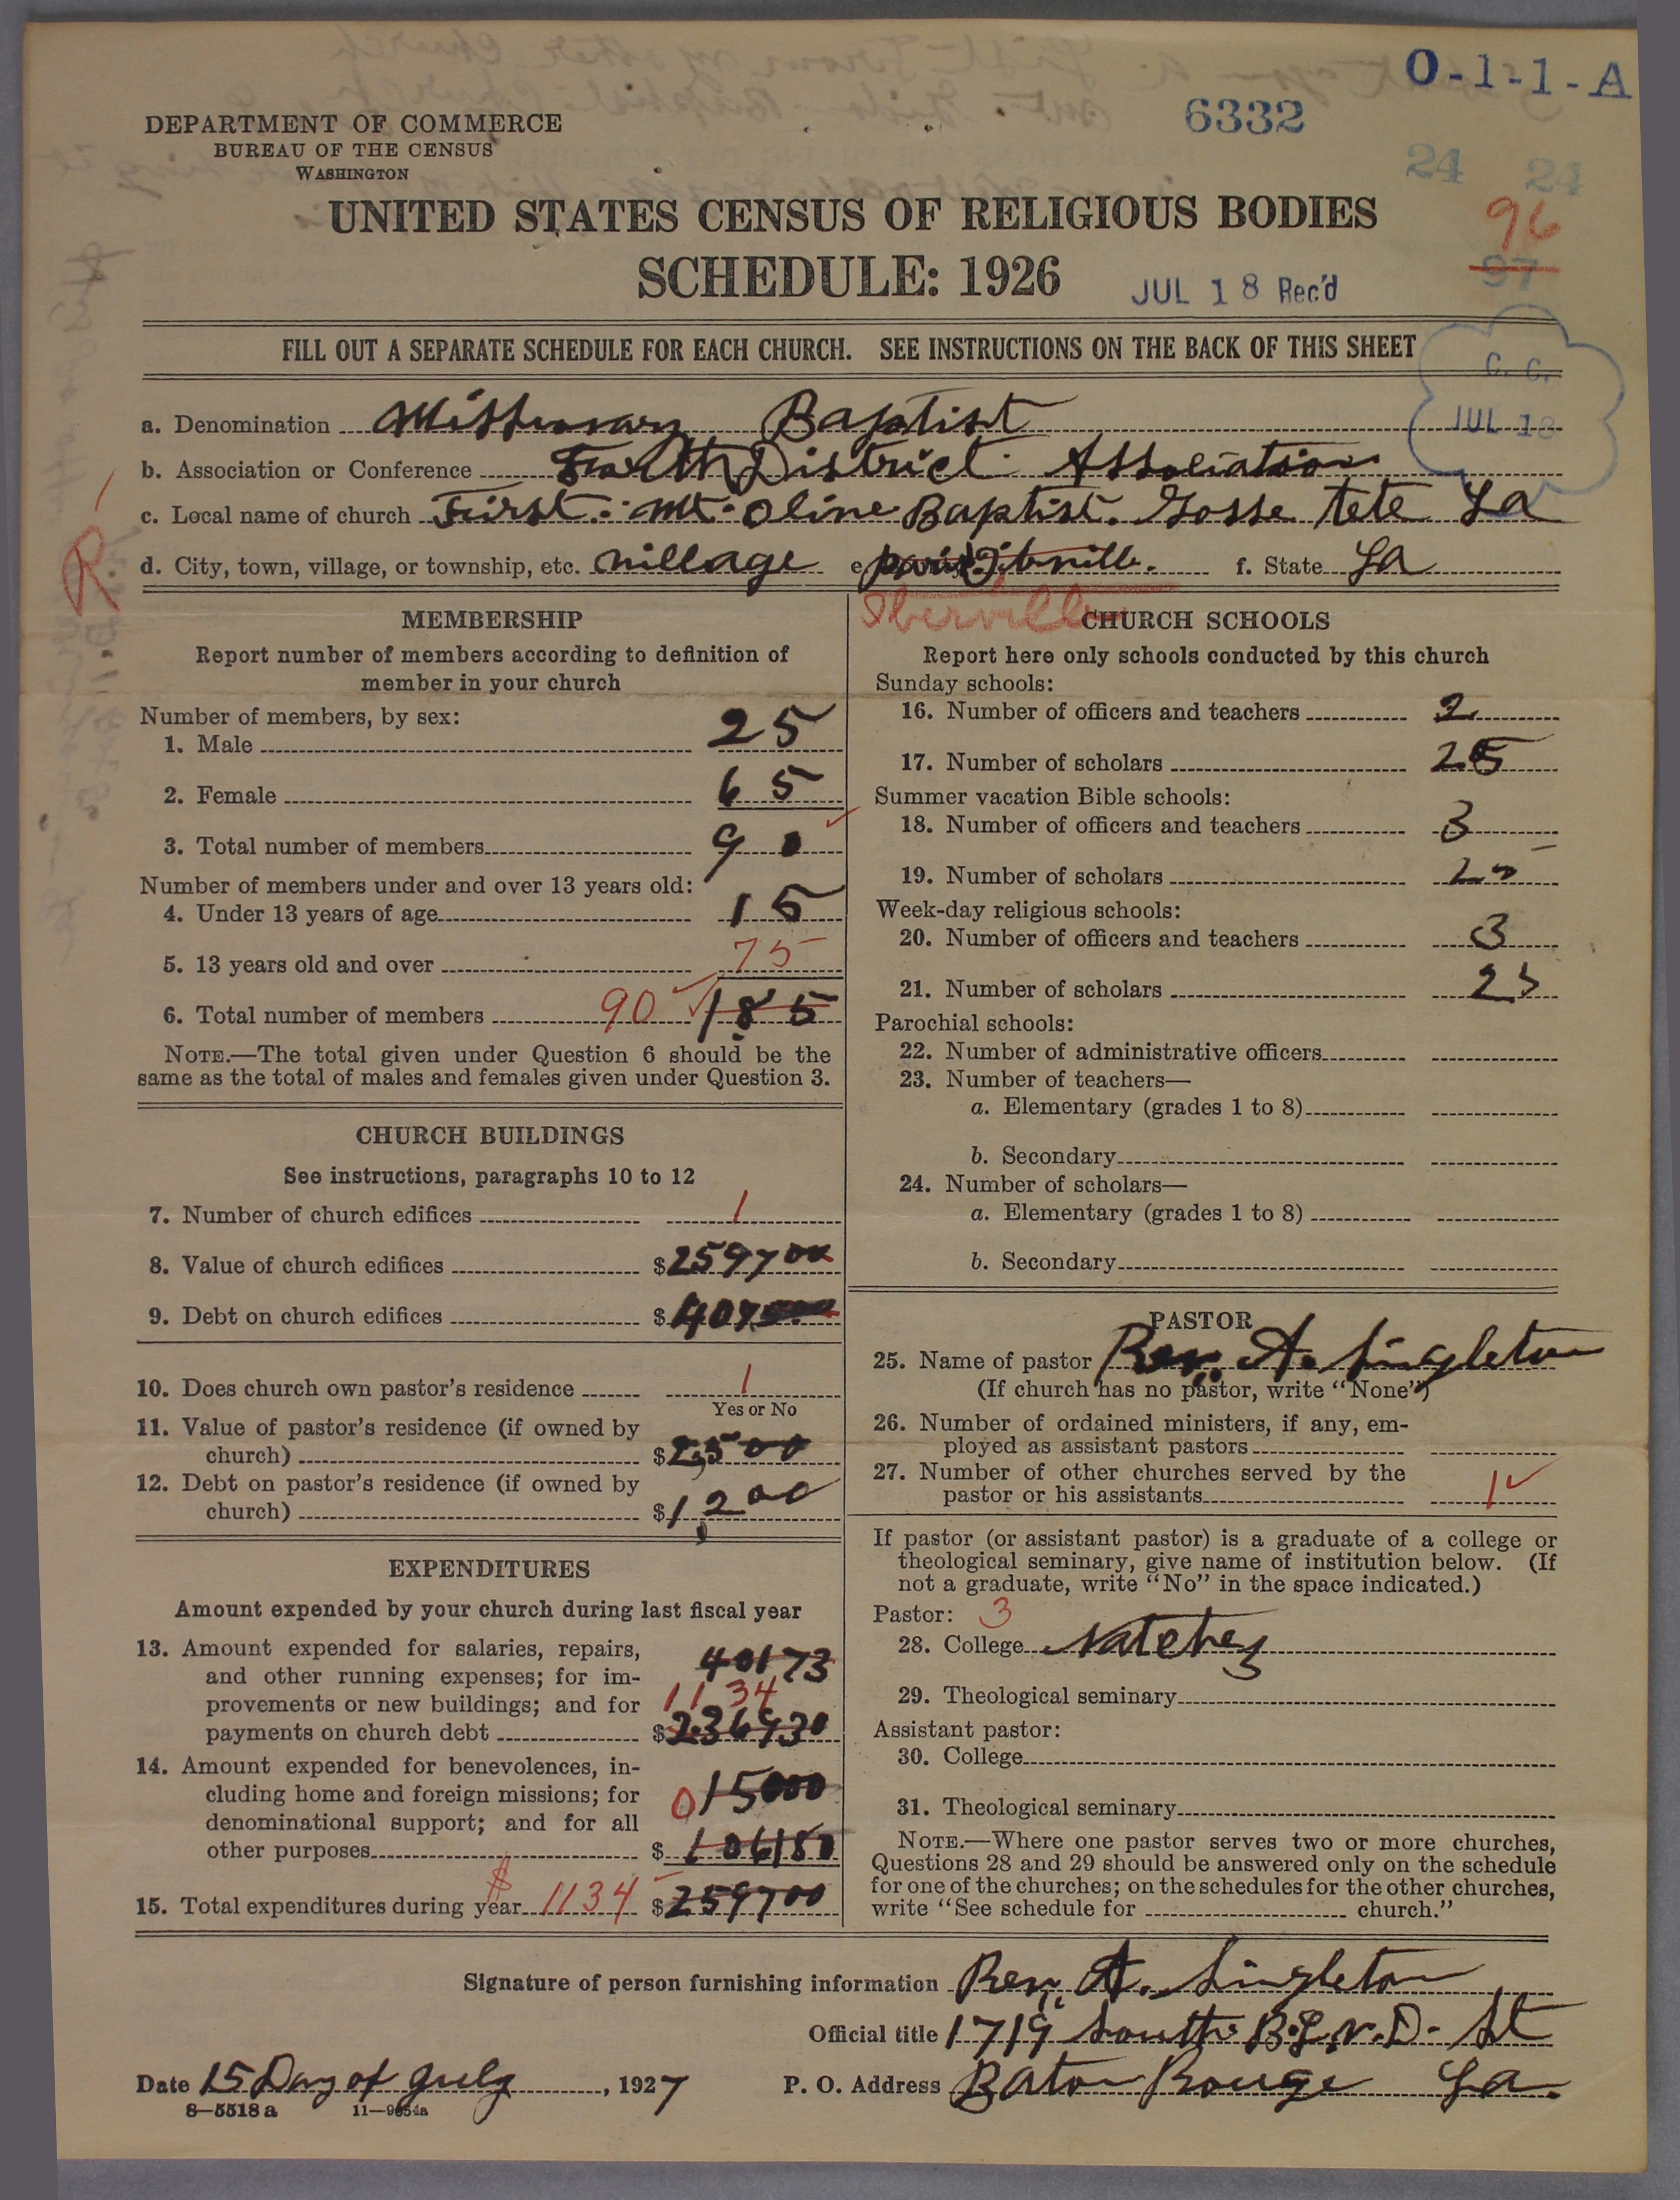 O-1-1-A
6332
DEPARTMENT OF COMMERCE
BUREAU OF THE CENSUS
WASHINGTON
24 24
UNITED STATES CENSUS OF RELIGIOUS BODIES
96
97
SCHEDULE: 1926
JUL 18 Rec'd
FILL OUT A SEPARATE SCHEDULE FOR EACH CHURCH. SEE INSTRUCTIONS ON THE BACK OF THIS SHEET
C. C.
JUL 18
a. Denomination Missionary Baptist
b. Association or Conference Fourth District Association
c. Local name of church First Mt. Oline Baptist. Gosse tete La
d. City, town, village, or township, etc. village e. f. State La
R
Iberville
MEMBERSHIP
Report number of members according to definition of
member in your church
Number of members, by sex:
1. Male 25
2. Female 65
3. Total number of members 90
Number of members under and over 13 years old:
4. Under 13 years of age 15
5. 13 years old and over 75
6. Total number of members 90 185
NOTE.—The total given under Question 6 should be the
same as the total of males and females given under Question 3.
CHURCH BUILDINGS
See instructions, paragraphs 10 to 12
7. Number of church edifices 1
8. Value of church edifices $2597 00
9. Debt on church edifices $407
10. Does church own pastor's residence 1
Yes or No
11. Value of pastor's residence (if owned by
church) $2,500
12. Debt on pastor's residence (if owned by
church) $1,200
EXPENDITURES
Amount expended by your church during last fiscal year
13. Amount expended for salaries, repairs,
and other running expenses; for im-
provements or new buildings; and for
payments on church debt
40173
1134
$236930
14. Amount expended for benevolences, in-
cluding home and foreign missions; for
denominational support; and for all
other purposes
0 15000
$106180
15. Total expenditures during year $1134 $259700
CHURCH SCHOOLS
Report here only schools conducted by this church
Sunday schools:
16. Number of officers and teachers 2
17. Number of scholars 25
Summer vacation Bible schools:
18. Number of officers and teachers 3
19. Number of scholars
Week-day religious schools:
20. Number of officers and teachers 3
21. Number of scholars 25
Parochial schools:
22. Number of administrative officers
23. Number of teachers—
a. Elementary (grades 1 to 8)
b. Secondary
24. Number of scholars—
a. Elementary (grades 1 to 8)
b. Secondary
PASTOR
25. Name of pastor Rev. A. Singleton
(If church has no pastor, write "None")
26. Number of ordained ministers, if any, em-
ployed as assistant pastors
27. Number of other churches served by the
pastor or his assistants 1
If pastor (or assistant pastor) is a graduate of a college or
theological seminary, give name of institution below. (If
not a graduate, write "No" in the space indicated.)
Pastor: 3
28. College Natchez
29. Theological seminary
Assistant pastor:
30. College
31. Theological seminary
NOTE.—Where one pastor serves two or more churches,
Questions 28 and 29 should be answered only on the schedule
for one of the churches; on the schedules for the other churches,
write "See schedule for church."
Signature of person furnishing information Rev. A. Singleton
Official title 1719 South B.L.V.D. St
Date 15 Day of July, 1927 P. O. Address Baton Rouge La.
8—5518a 11—9054a